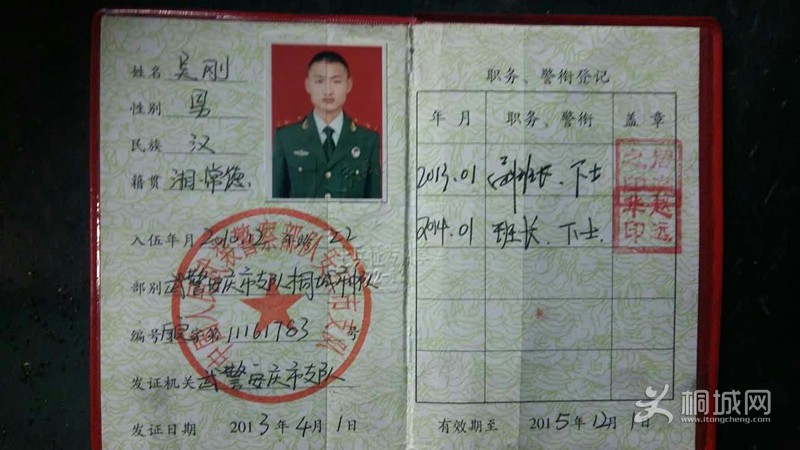 姓名 吴刚
性别 男
民族 汉
籍贯 湘·常德
入伍年月 2010.12 年龄 22
部别 武警安庆市支队桐城市中队
编号 字第 11161783 号
发证机关 武警安庆市支队
发证日期 2013年4月1日
职务、警衔登记
年月 职务、警衔 盖章
2013.01 副班长、下士
2014.01 班长、下士
有效期至 2015年12月1日
桐城网
www.itongcheng.com